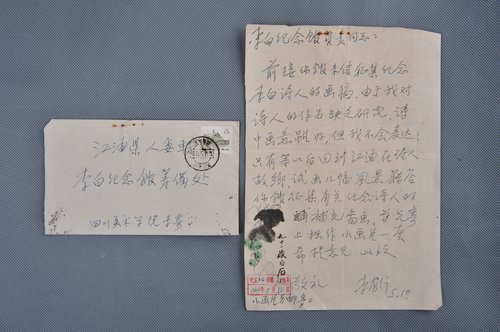 江油县人委
李白纪念馆筹备处
四川美术学院李
李白纪念馆负责同志:
前接你馆来信征集纪念
李白诗人的画稿,由于我对
诗人的作品缺乏研究,诗
中画意虽好,但我不会表达!
只有等以后回到江油在诗人
故乡,试画几幅风景
你馆征集有关纪念诗人的
补充
上拙作小画片一套
希提意见 此致
敬礼
九十
白石
小画片另邮寄上